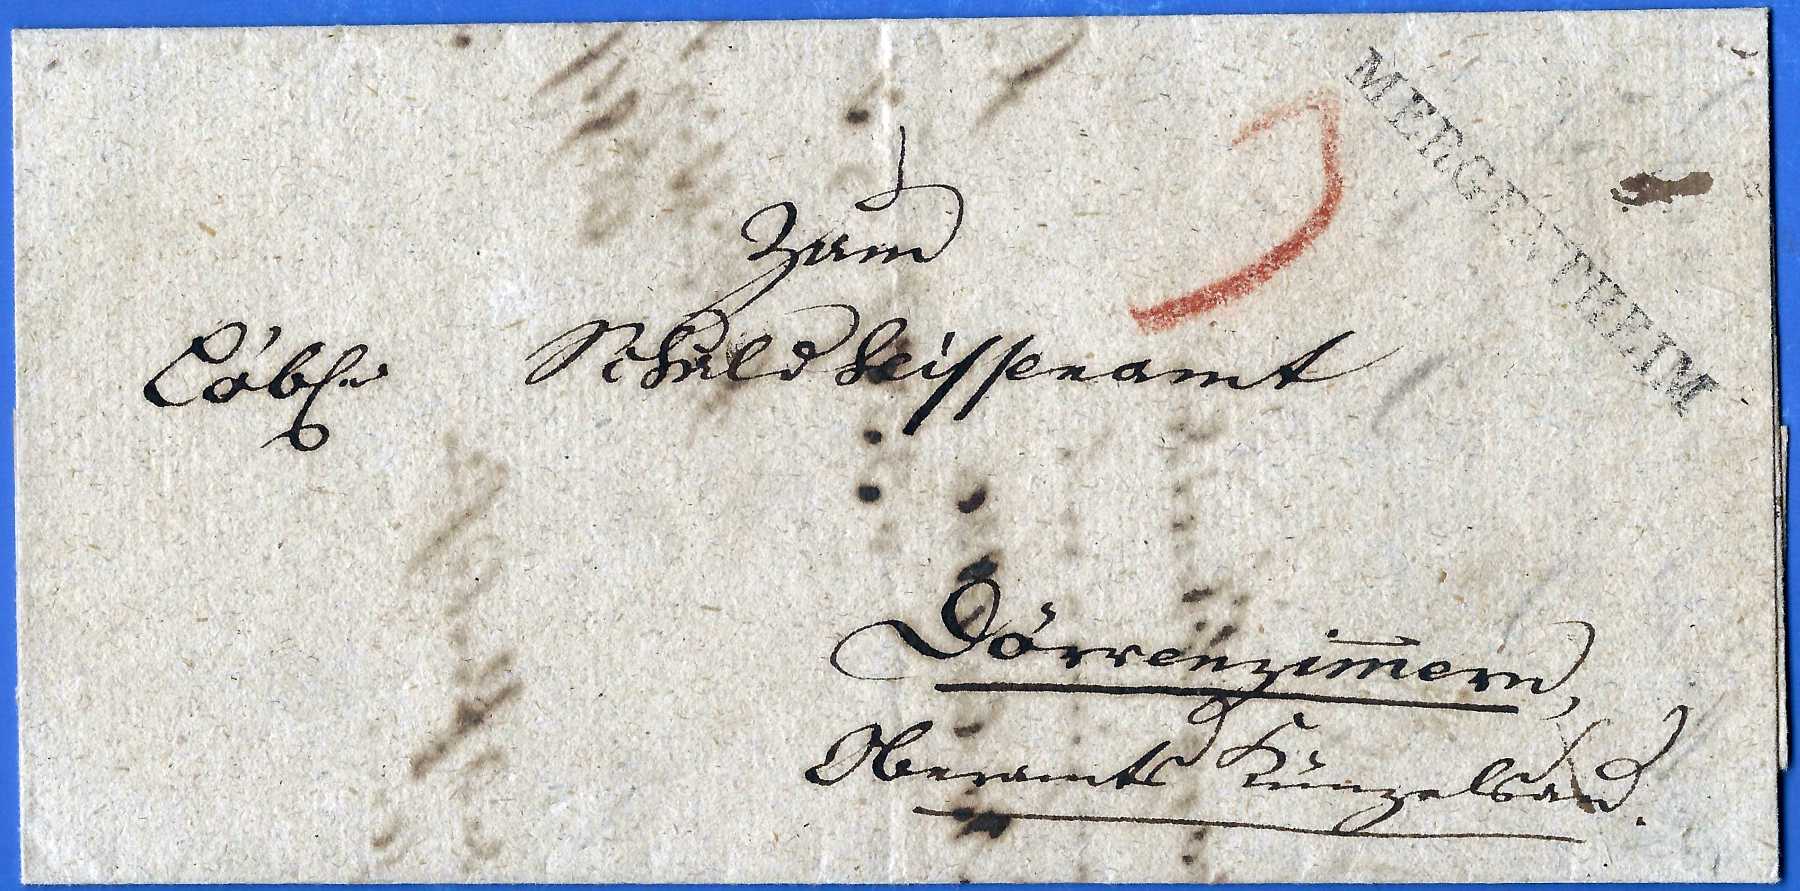 MERGENTHEIM
Zum
Löbl. Schuldheissenamt
Dörrenzimmern,
Oberamts Künzelsau.